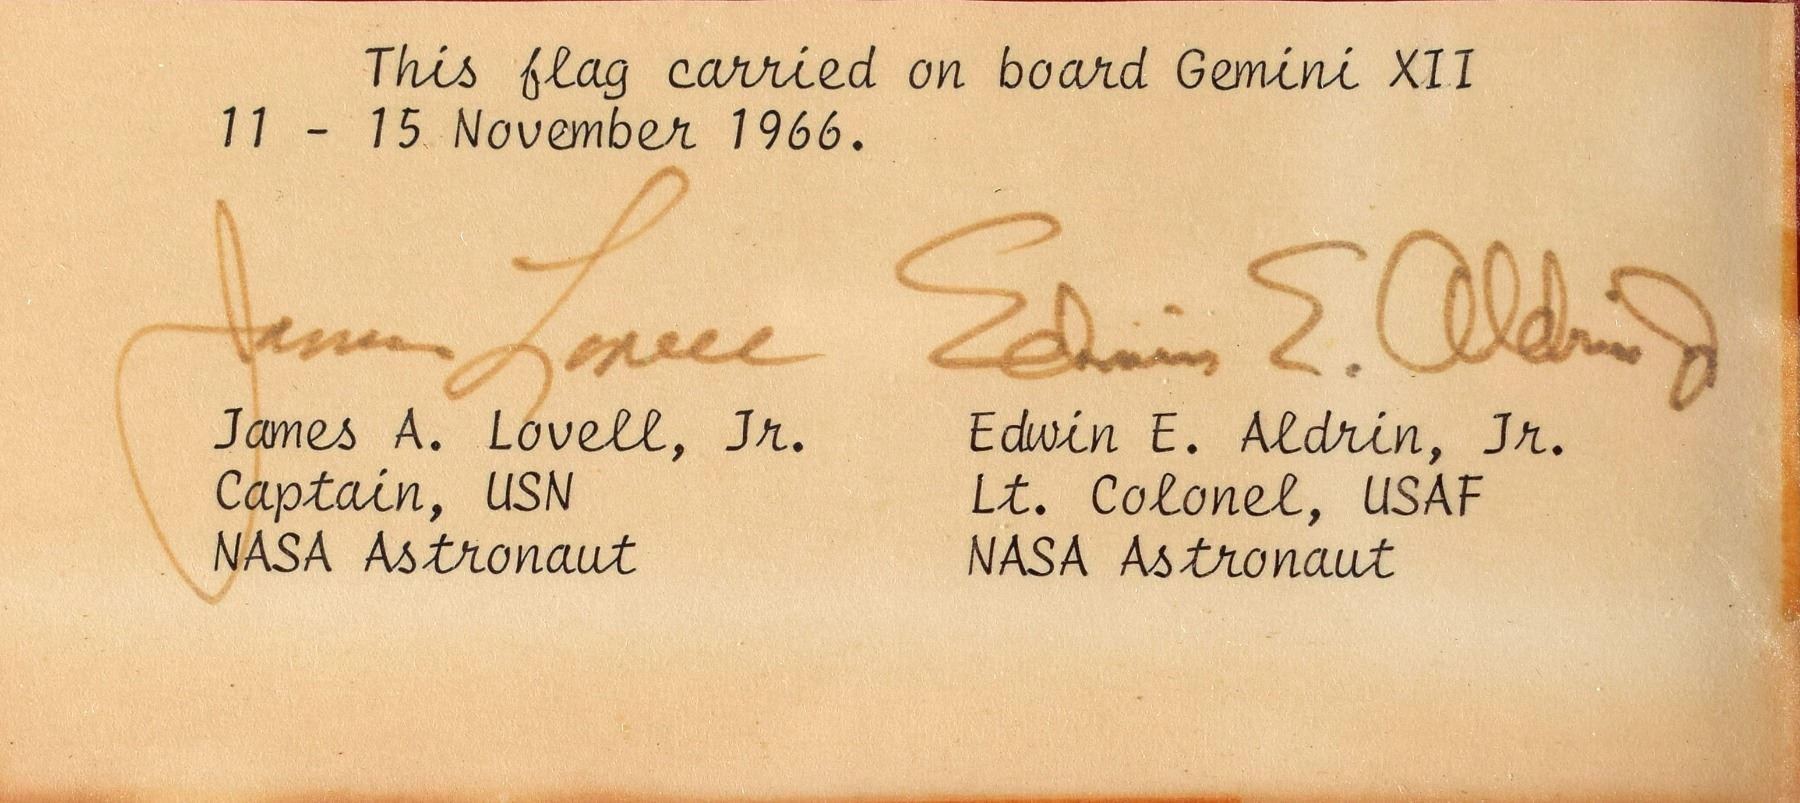 This flag carried on board Gemini XII
11 - 15 November 1966.
James Lovell
Edwin E. Aldrin Jr
James A. Lovell, Jr.
Captain, USN
NASA Astronaut
Edwin E. Aldrin, Jr.
Lt. Colonel, USAF
NASA Astronaut